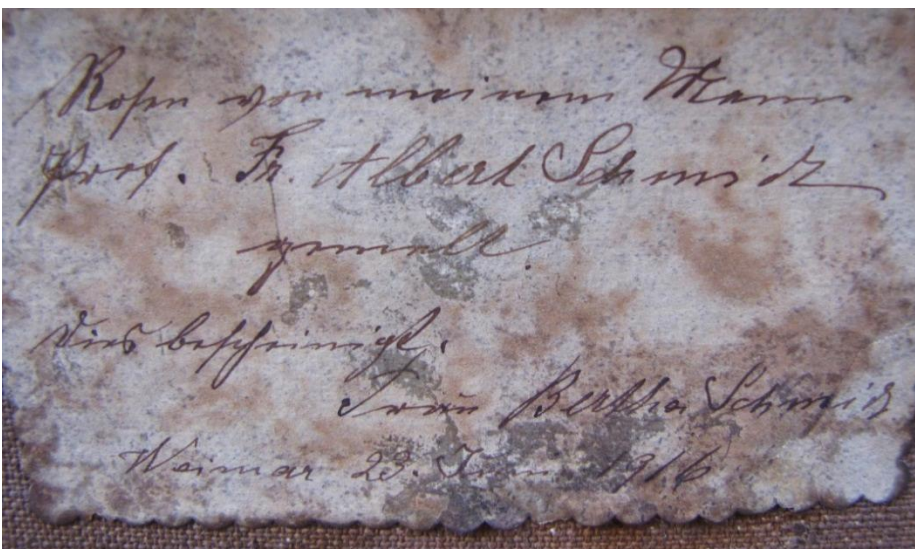 Rosen von meinem Mann
Prof. Fr. Albert Schmidt
gemalt.
Dies bescheinigt.
Frau Bertha Schmidt
Weimar 23. Juni 1916